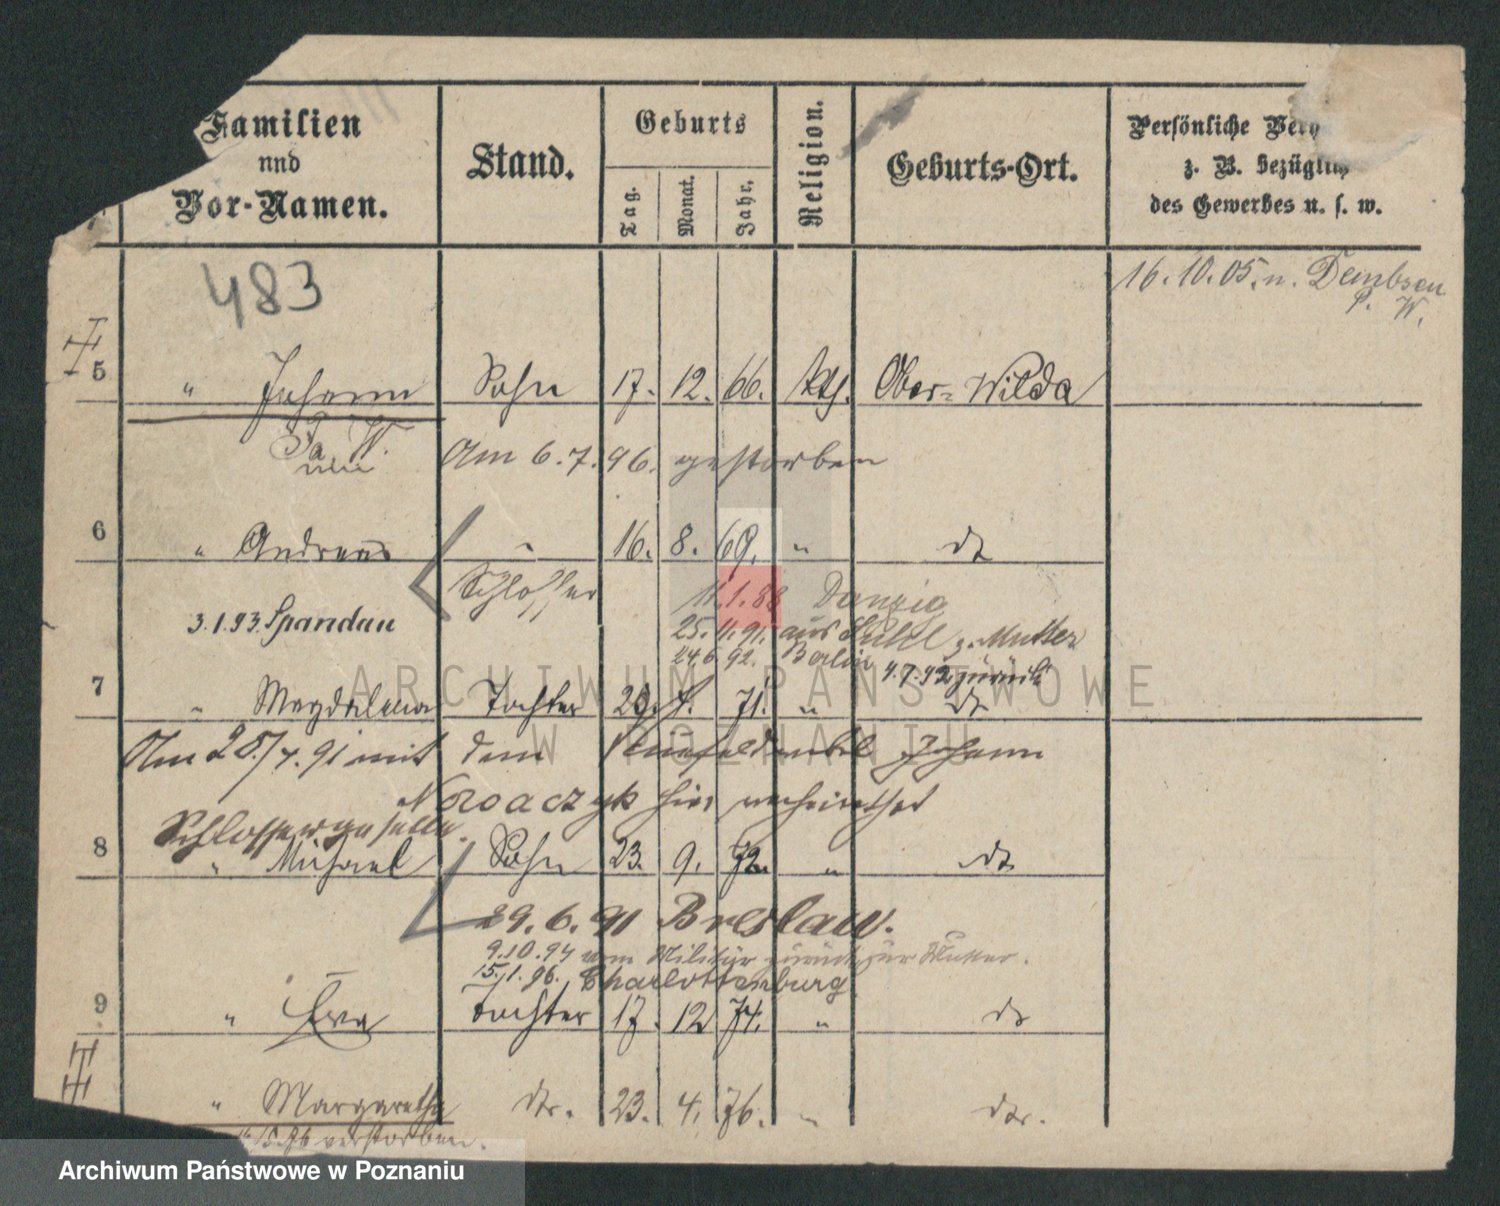 Familien
und
Vor-Namen.
Stand.
Geburts
Tag.
Monat.
Jahr.
Religion.
Geburts-Ort.
Persönliche
z. B. bezüglich
des Gewerbes u. s. w.
483
16.10.05. n. Dembsen
P. W.
5 " Johann Sohn 17. 12. 66. kth. Ober-Wilda
Am 6.7.96. gestorben
6 " Andreas " 16. 8. 69. " dt
Schlosser
11.1.88 Danzig
3.1.93. Spandau
25.11.91. aus Suhl z. Mutter
24.6.92. Berlin 4.7.92 zurück
7 " Magdalena Tochter 20. 7. 71. " dt
Am 25/7.91 mit dem Vizefeldwebel Johann
Nowaczyk hier verheirathet
Schlossergeselle
8 " Michael Sohn 23. 9. 72. " dt
29.6.91 Breslau.
9.10.94 vom Militär zurück zur Mutter.
15.1.96. Charlottenburg
9 " Eva Tochter 17. 12 74. " dt
" Margaretha dtr. 23. 4. 76. " dtr.
verstorben.
ARCHIWUM PAŃSTWOWE
W POZNANIU
Archiwum Państwowe w Poznaniu